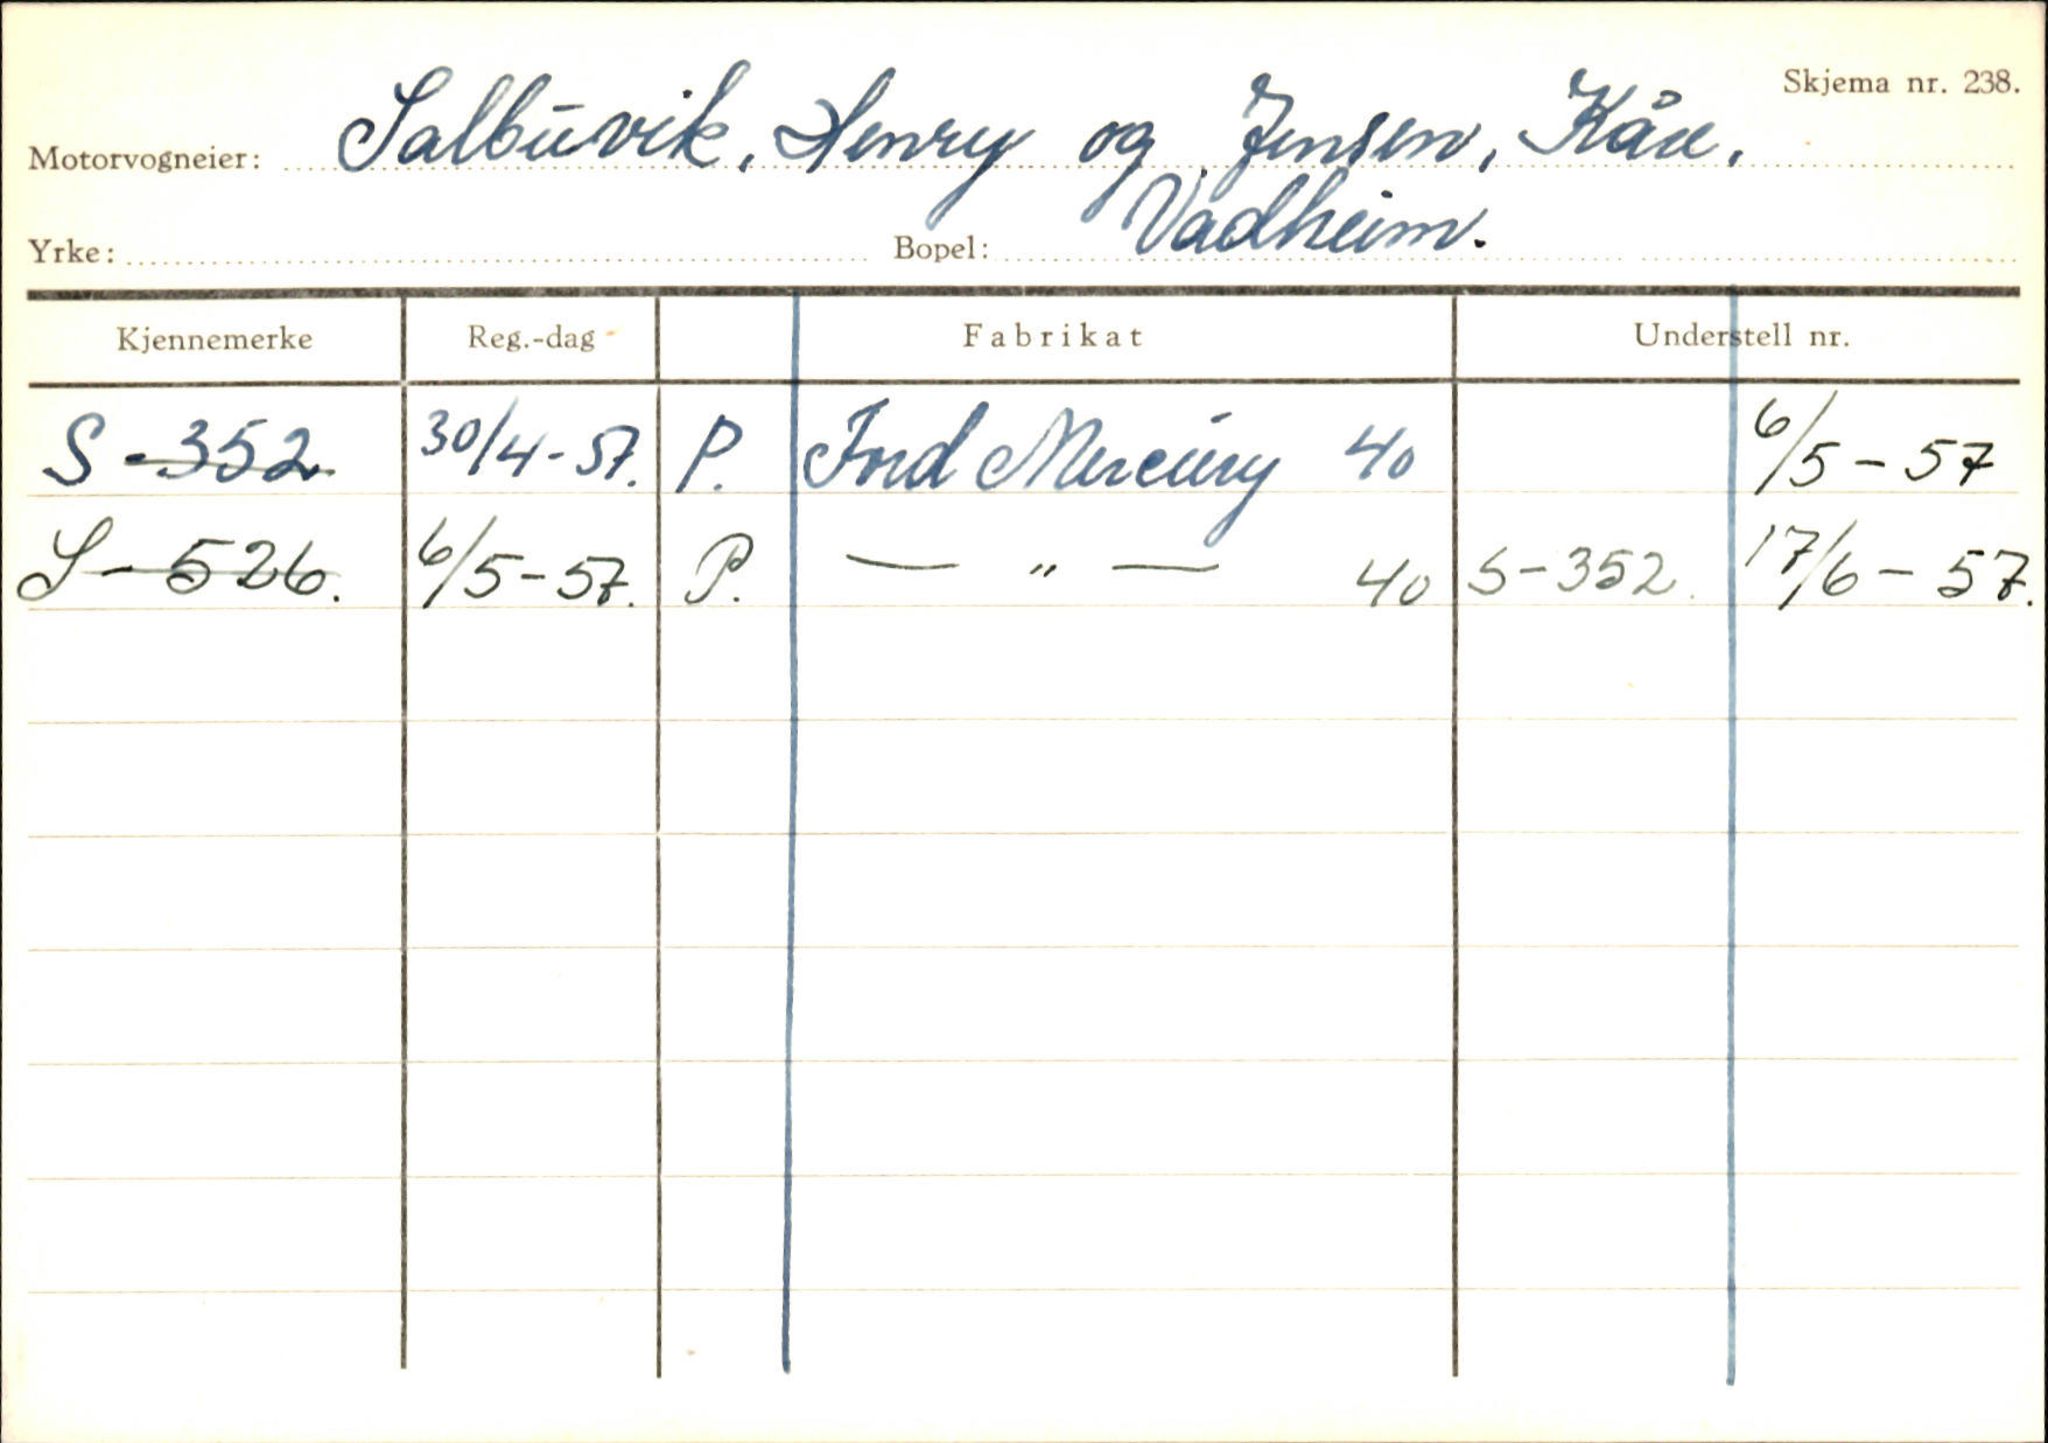 Skjema nr. 238.
Motorvogneier: Salbuvik, Henry og Jensen, Kåre.
Yrke: Bopel: Vadheim.
Kjennemerke Reg.-dag Fabrikat Understell nr.
S-352 30/4-57. P. Ford Mercury 40 6/5-57
S-526. 6/5-57. P. — " — 40 S-352. 17/6-57.